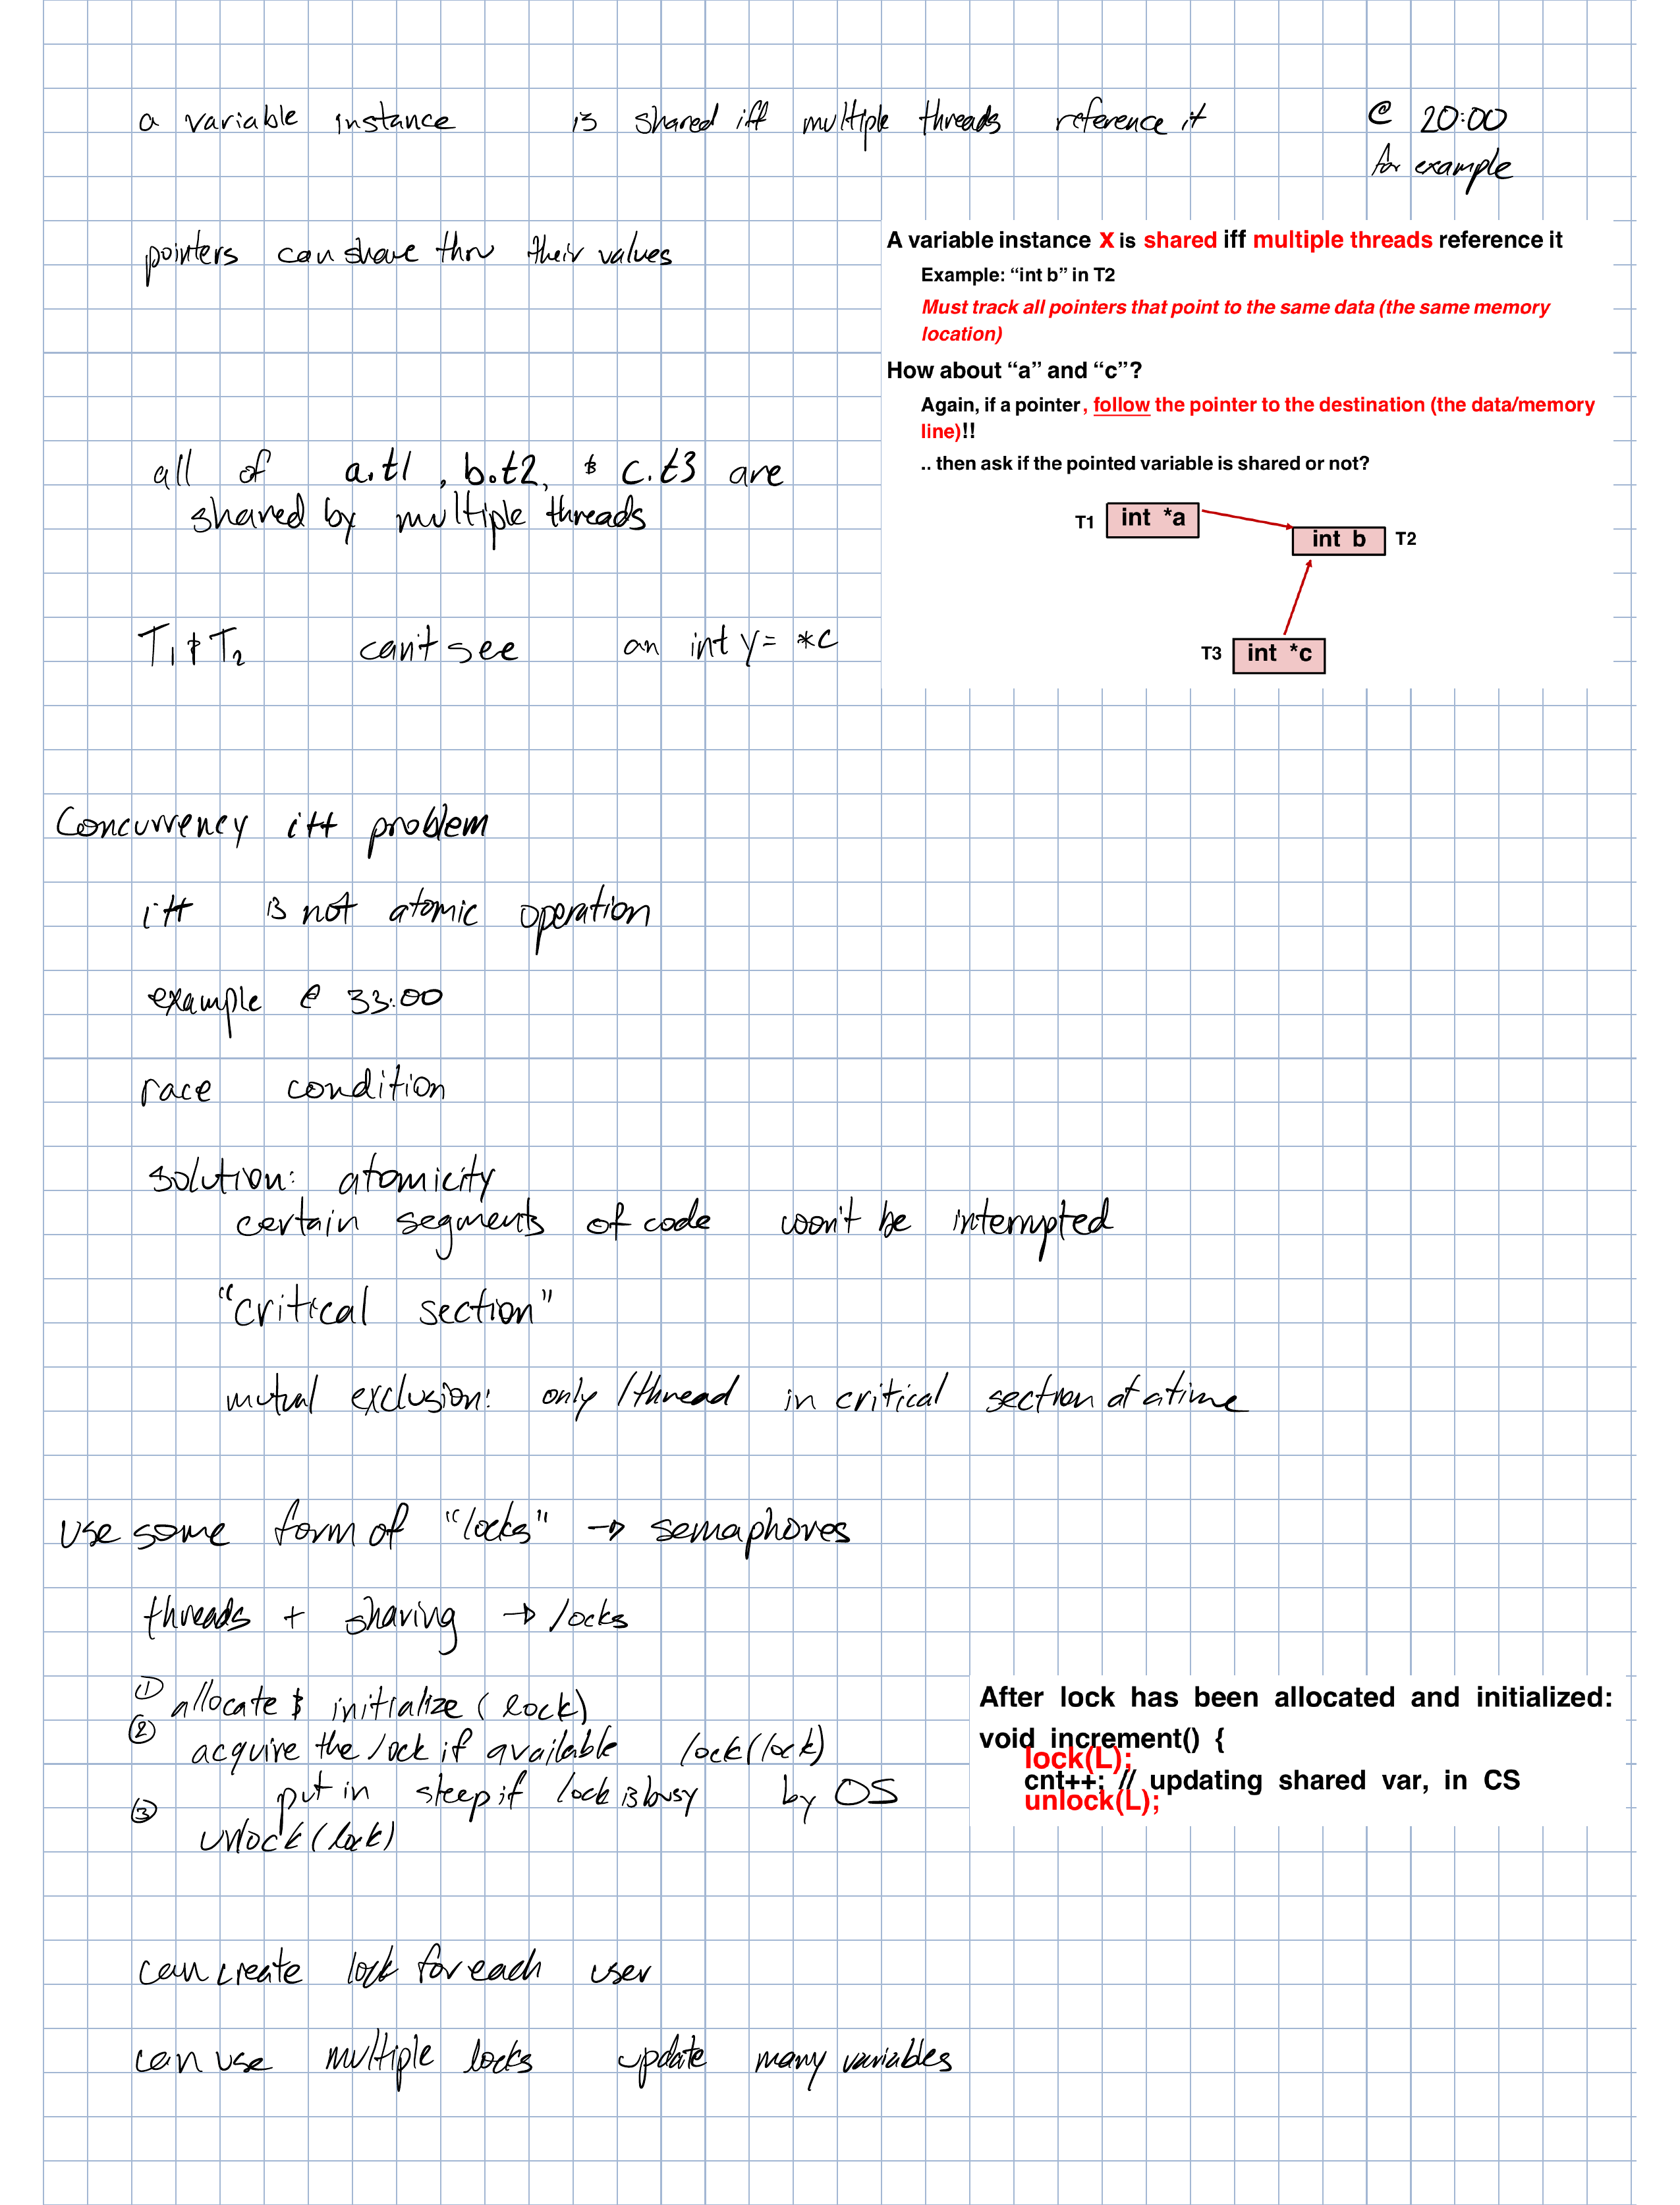 a variable instance is shared iff multiple threads reference it @ 20:00
for example
pointers can share thru their values
A variable instance x is shared iff multiple threads reference it
Example: “int b” in T2
Must track all pointers that point to the same data (the same memory
location)
How about “a” and “c”?
Again, if a pointer, follow the pointer to the destination (the data/memory
line)!!
.. then ask if the pointed variable is shared or not?
T1 int *a
int b T2
T3 int *c
all of a.t1, b.t2, & c.t3 are
shared by multiple threads
T1 & T2 can't see an int y = *c
Concurrency i++ problem
i++ is not atomic operation
example @ 33:00
race condition
solution: atomicity
certain segments of code won't be interrupted
"critical section"
mutual exclusion: only 1 thread in critical section at a time
use some form of "locks" → semaphores
threads + sharing → locks
① allocate & initialize (lock)
② acquire the lock if available lock(lock)
put in sleep if lock is busy by OS
③ unlock(lock)
After lock has been allocated and initialized:
void increment() {
lock(L);
cnt++; // updating shared var, in CS
unlock(L);
can create lock for each user
can use multiple locks update many variables